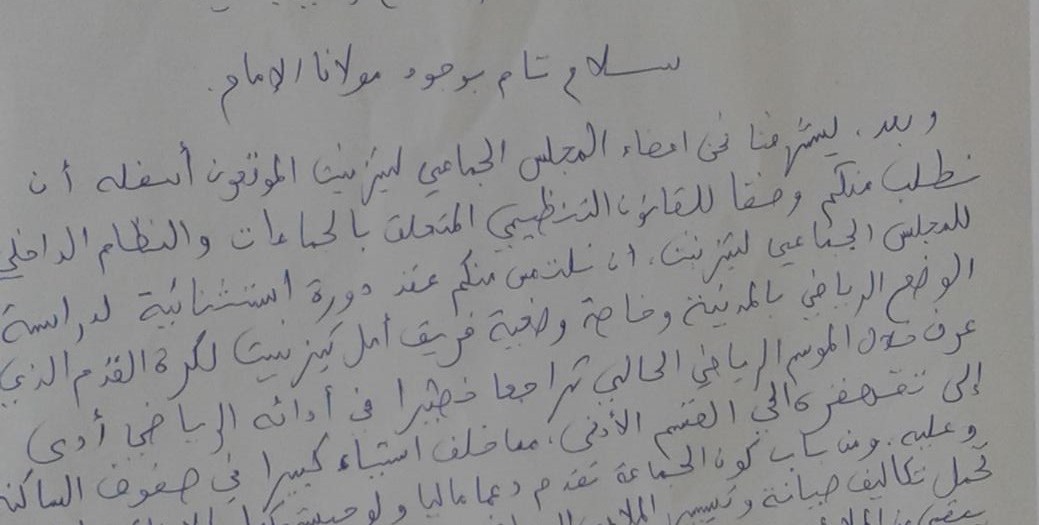 سلام تام بوجود مولانا الإمام.
وبعد، ليشرفنا نحن اعضاء المجلس الجماعي لتيزنيت الموقعون أسفله أن
نطلب منكم وفقا للقانون التنظيمي المتعلق بالجماعات والنظام الداخلي
للمجلس الجماعي لتيزنيت، ان نلتمس منكم عقد دورة استثنائية لدراسة
الوضع الرياضي بالمدينة وخاصة وضعية فريق أمل تيزنيت لكرة القدم الذي
عرف خلال الموسم الرياضي الحالي تراجعا خطيرا في أدائه الرياضي أدى
إلى تقهقره إلى القسم الأدنى، مما خلف استياء كبيرا في صفوف الساكنة
وعليه، ومن باب كون الجماعة تقدم دعما ماليا و
تحمل تكاليف صيانة وتسيير